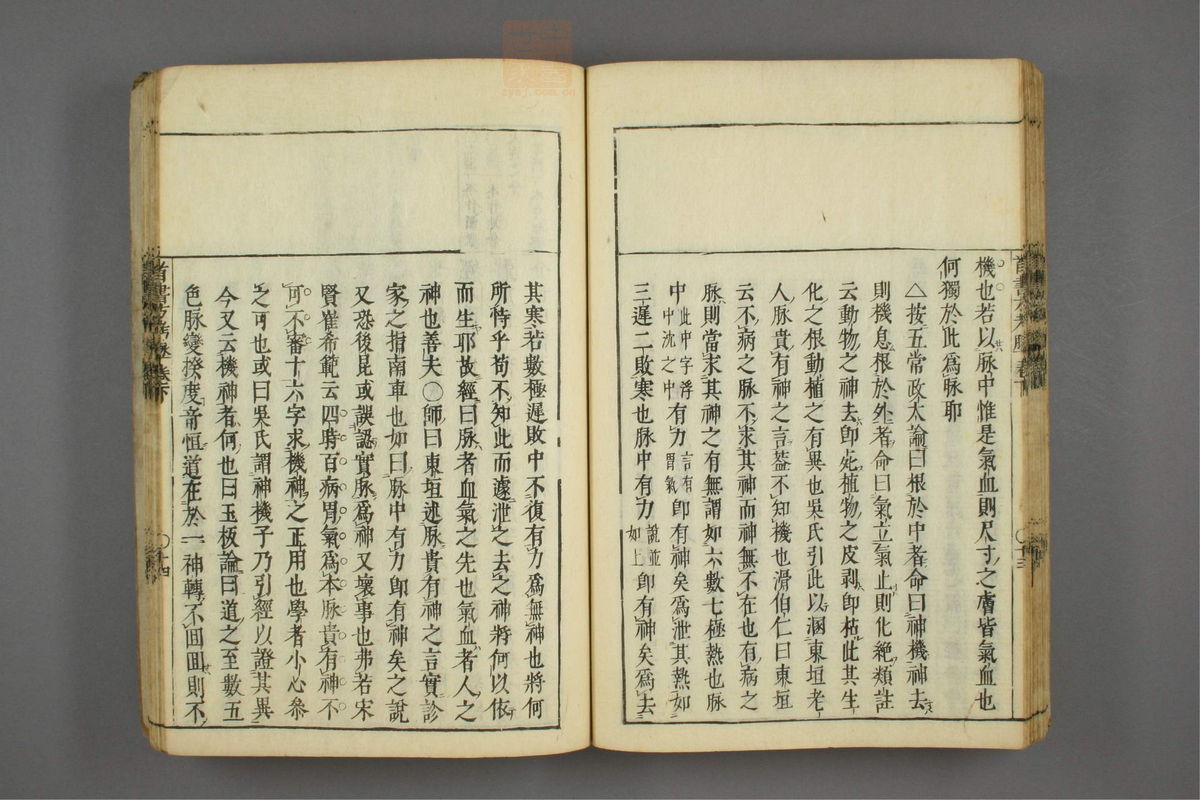 機也若以脉中惟是氣血則尺寸之膚皆氣血也
何獨於此爲脉耶
△按五常政大論曰根於中者命曰神機神去
則機息根於外者命曰氣立氣止則化絶類註
云動物之神去卽死植物之皮剥卽枯此其生
化之根動植之有異也吳氏引此以溷東垣老
人脉貴有神之言葢不知機也滑伯仁曰東垣
云不病之脉不求其神而神無不在也有病之
脉則當求其神之有無謂如六數七極熱也脉
中此中字浮中沈之中有力言有胃氣卽有神矣爲泄其熱如
三遲二敗寒也脉中有力說並如上卽有神矣爲去
其寒若數極遲敗中不復有力爲無神也將何
所恃乎苟不知此而遽泄之去之神將何以依
而生耶故經曰脉者血氣之先也氣血者人之
神也善夫○師曰東垣述脉貴有神之言實診
家之指南車也如曰脉中有力卽有神矣之說
又恐後昆或誤認實脉爲神又壞事也弗若宋
賢崔希範云四時百病胃氣爲本脉貴有神不
可不審十六字求機神之正用也學者小心叅
之可也或曰吳氏謂神機子乃引經以證其異
今又云機神者何也曰玉板論曰道之至數五
色脉變揆度奇恒道在於一神轉不回回則不
十三
十四
zysj.com.cn